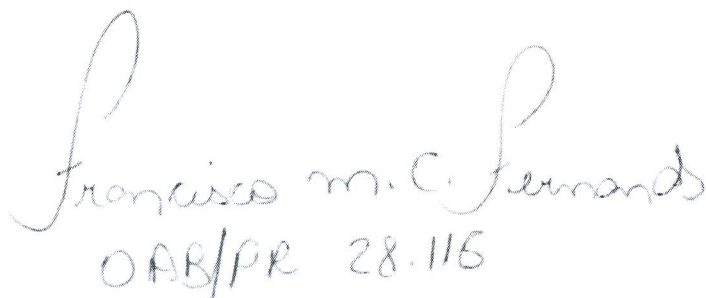 Francisco M. C. Fernands
OAB/PR 28.116